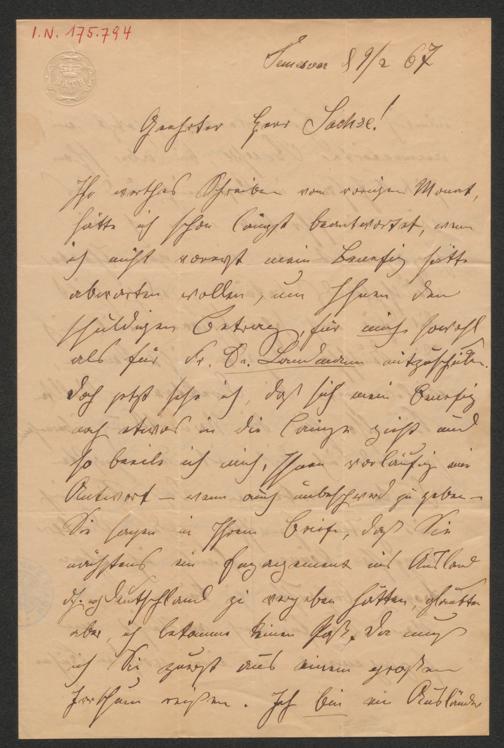 I.N. 175.794
Temesvar 9/2 67
Geehrter Herr Sachse!
Ihr werthes Schreiben vom vorigen Monat,
hätte ich schon längst beantwortet, wenn
ich nicht vorerst mein Benefiz hätte
abwarten wollen, um Ihnen den
schuldigen Betrag, für mich sowohl
als für Fr. Dr. Landmann mitzuschicken.
Doch jetzt sehe ich, daß sich mein Benefiz
noch etwas in die Länge zieht und
so beeile ich mich, Ihnen vorläufig eine
Antwort – wenn auch unbeschwert zu geben –
Sie sagen in Ihrem Briefe, daß Sie
nächstens ein Engagement ins Ausland
Deutschland zu vergeben hätten, glaubten
aber, ich bekomme keinen Paß. Da muß
ich Sie zuerst aus einem großen
Irrthum reißen. Ich bin ein Ausländer